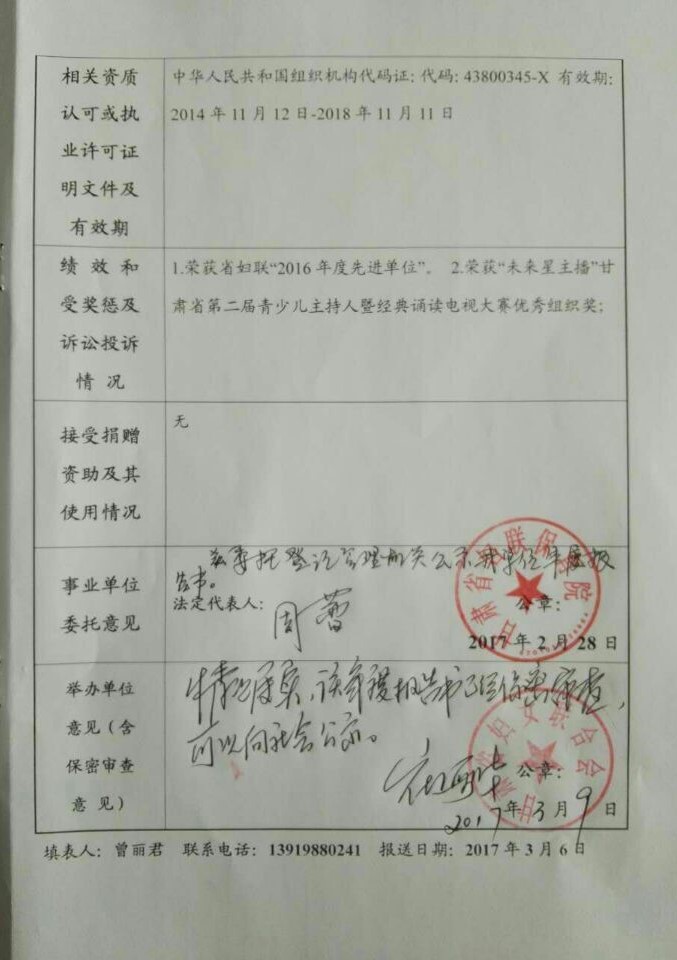 相关资质
认可或执
业许可证
明文件及
有效期
中华人民共和国组织机构代码证: 代码: 43800345-X 有效期:
2014 年 11 月 12 日-2018 年 11 月 11 日
绩 效 和
受奖惩及
诉讼投诉
情 况
1.荣获省妇联“2016 年度先进单位”。 2.荣获“未来星主播”甘
肃省第二届青少儿主持人暨经典诵读电视大赛优秀组织奖;
接受捐赠
资助及其
使用情况
无
事业单位
委托意见
兹委托登记管理机关公示我单位年度报
告书。
法定代表人:
周蕾
公章:
2017 年 2 月 28 日
甘肃省妇联保育院
举办单位
意见（含
保密审查
意 见）
情况属实，该年度报告书已经保密审查，
可以向社会公示。
公章:
2017 年 3 月 9 日
甘肃省妇女联合会
填表人: 曾丽君 联系电话: 13919880241 报送日期: 2017 年 3 月 6 日